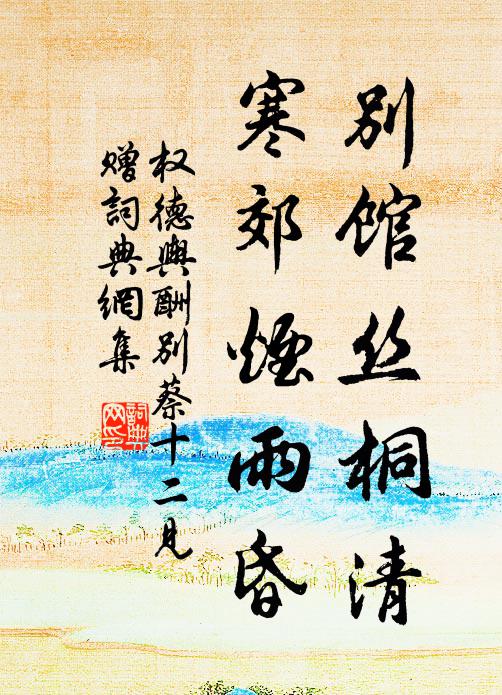 别馆丝桐清
寒郊烟雨昏
权德舆酬别蔡十二见
赠词典网集
词典网印